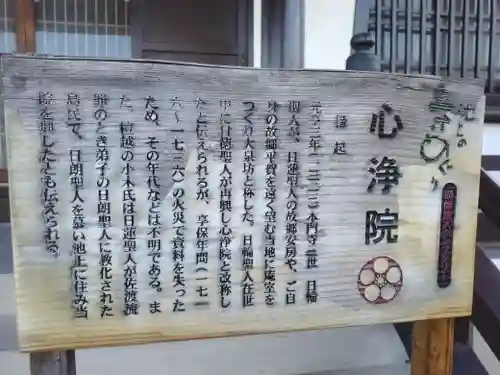 池上の
めぐり
心浄院
縁起
元亨三年(一三二三)本門寺三世 日輪
聖人が、日蓮聖人の故郷安房や、ご自
身の故郷平賀を遠く望む当地に庵室を
つくり大泉坊と称した。日輪聖人在世
中に日億聖人が再興し心浄院と改称し
たと伝えられるが、享保年間(一七一
六〜一七三六)の火災で資料を失った
ため、その年代などは不明である。ま
た、檀越の小木氏は日蓮聖人が佐渡流
罪のとき弟子の日朗聖人に教化された
島民で、日朗聖人を慕い池上に住み当
院を興したとも伝えられる。